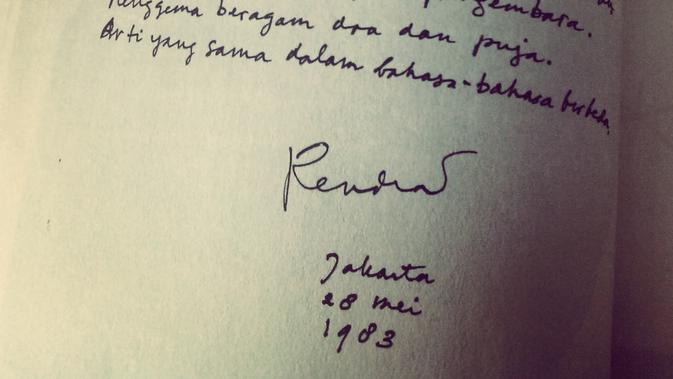 pengembara.
Menggema beragam doa dan puja.
Arti yang sama dalam bahasa-bahasa berbeda
Rendra
Jakarta
28 Mei
1983